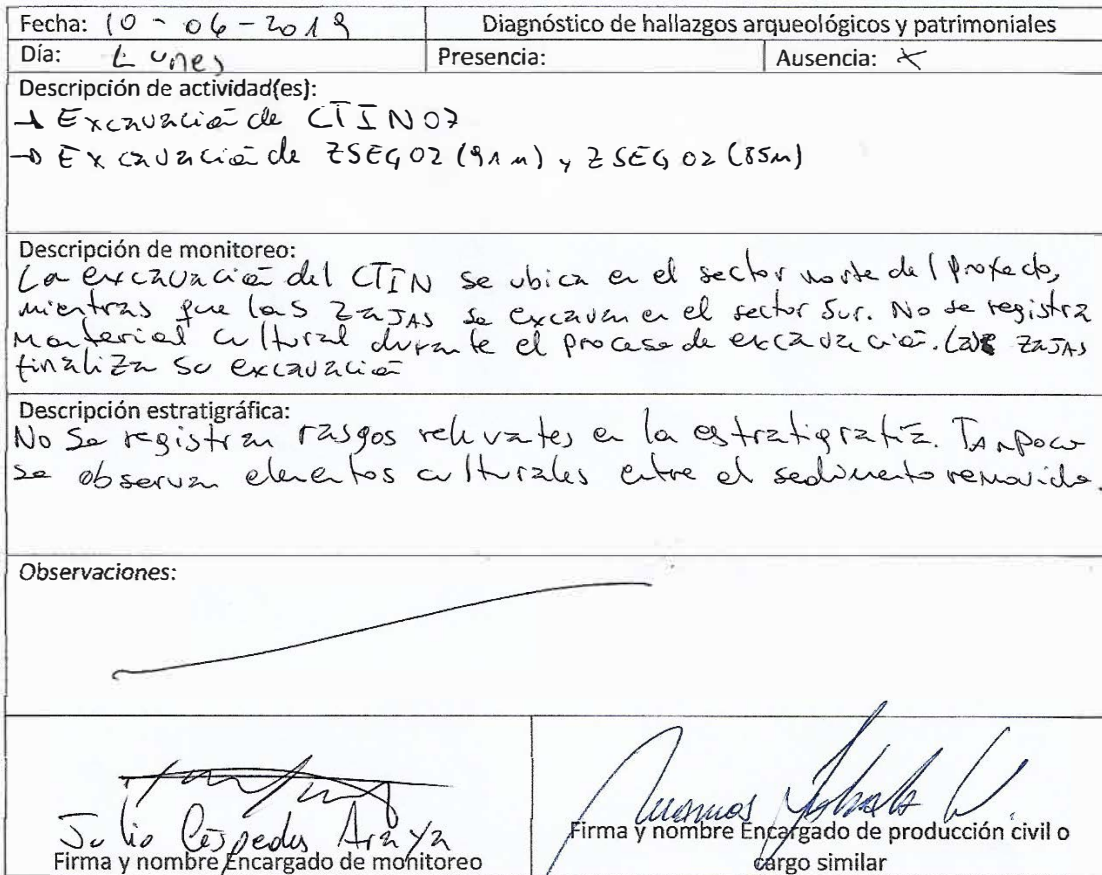 Fecha: 10-06-2019 Diagnóstico de hallazgos arqueológicos y patrimoniales
Día: Lunes Presencia: Ausencia: X
Descripción de actividad(es):
→ Excavación de CTIN07
→ Excavación de ZSEG02 (91m) y ZSEG02 (85m)
Descripción de monitoreo:
La excavación del CTIN se ubica en el sector norte del proyecto,
mientras que las zajas se excavan en el sector sur. No se registra
material cultural durante el proceso de excavación. Las zajas
finaliza su excavación
Descripción estratigráfica:
No se registran rasgos relevates en la estratigrafía. Tampoco
se observan elementos culturales entre el sedimento removido.
Observaciones:
Julio Céspedes Araya
Firma y nombre Encargado de monitoreo
Firma y nombre Encargado de producción civil o
cargo similar